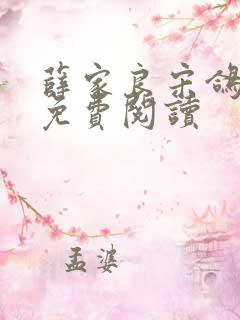 薛家良宋鴿
免費閱讀
孟婆